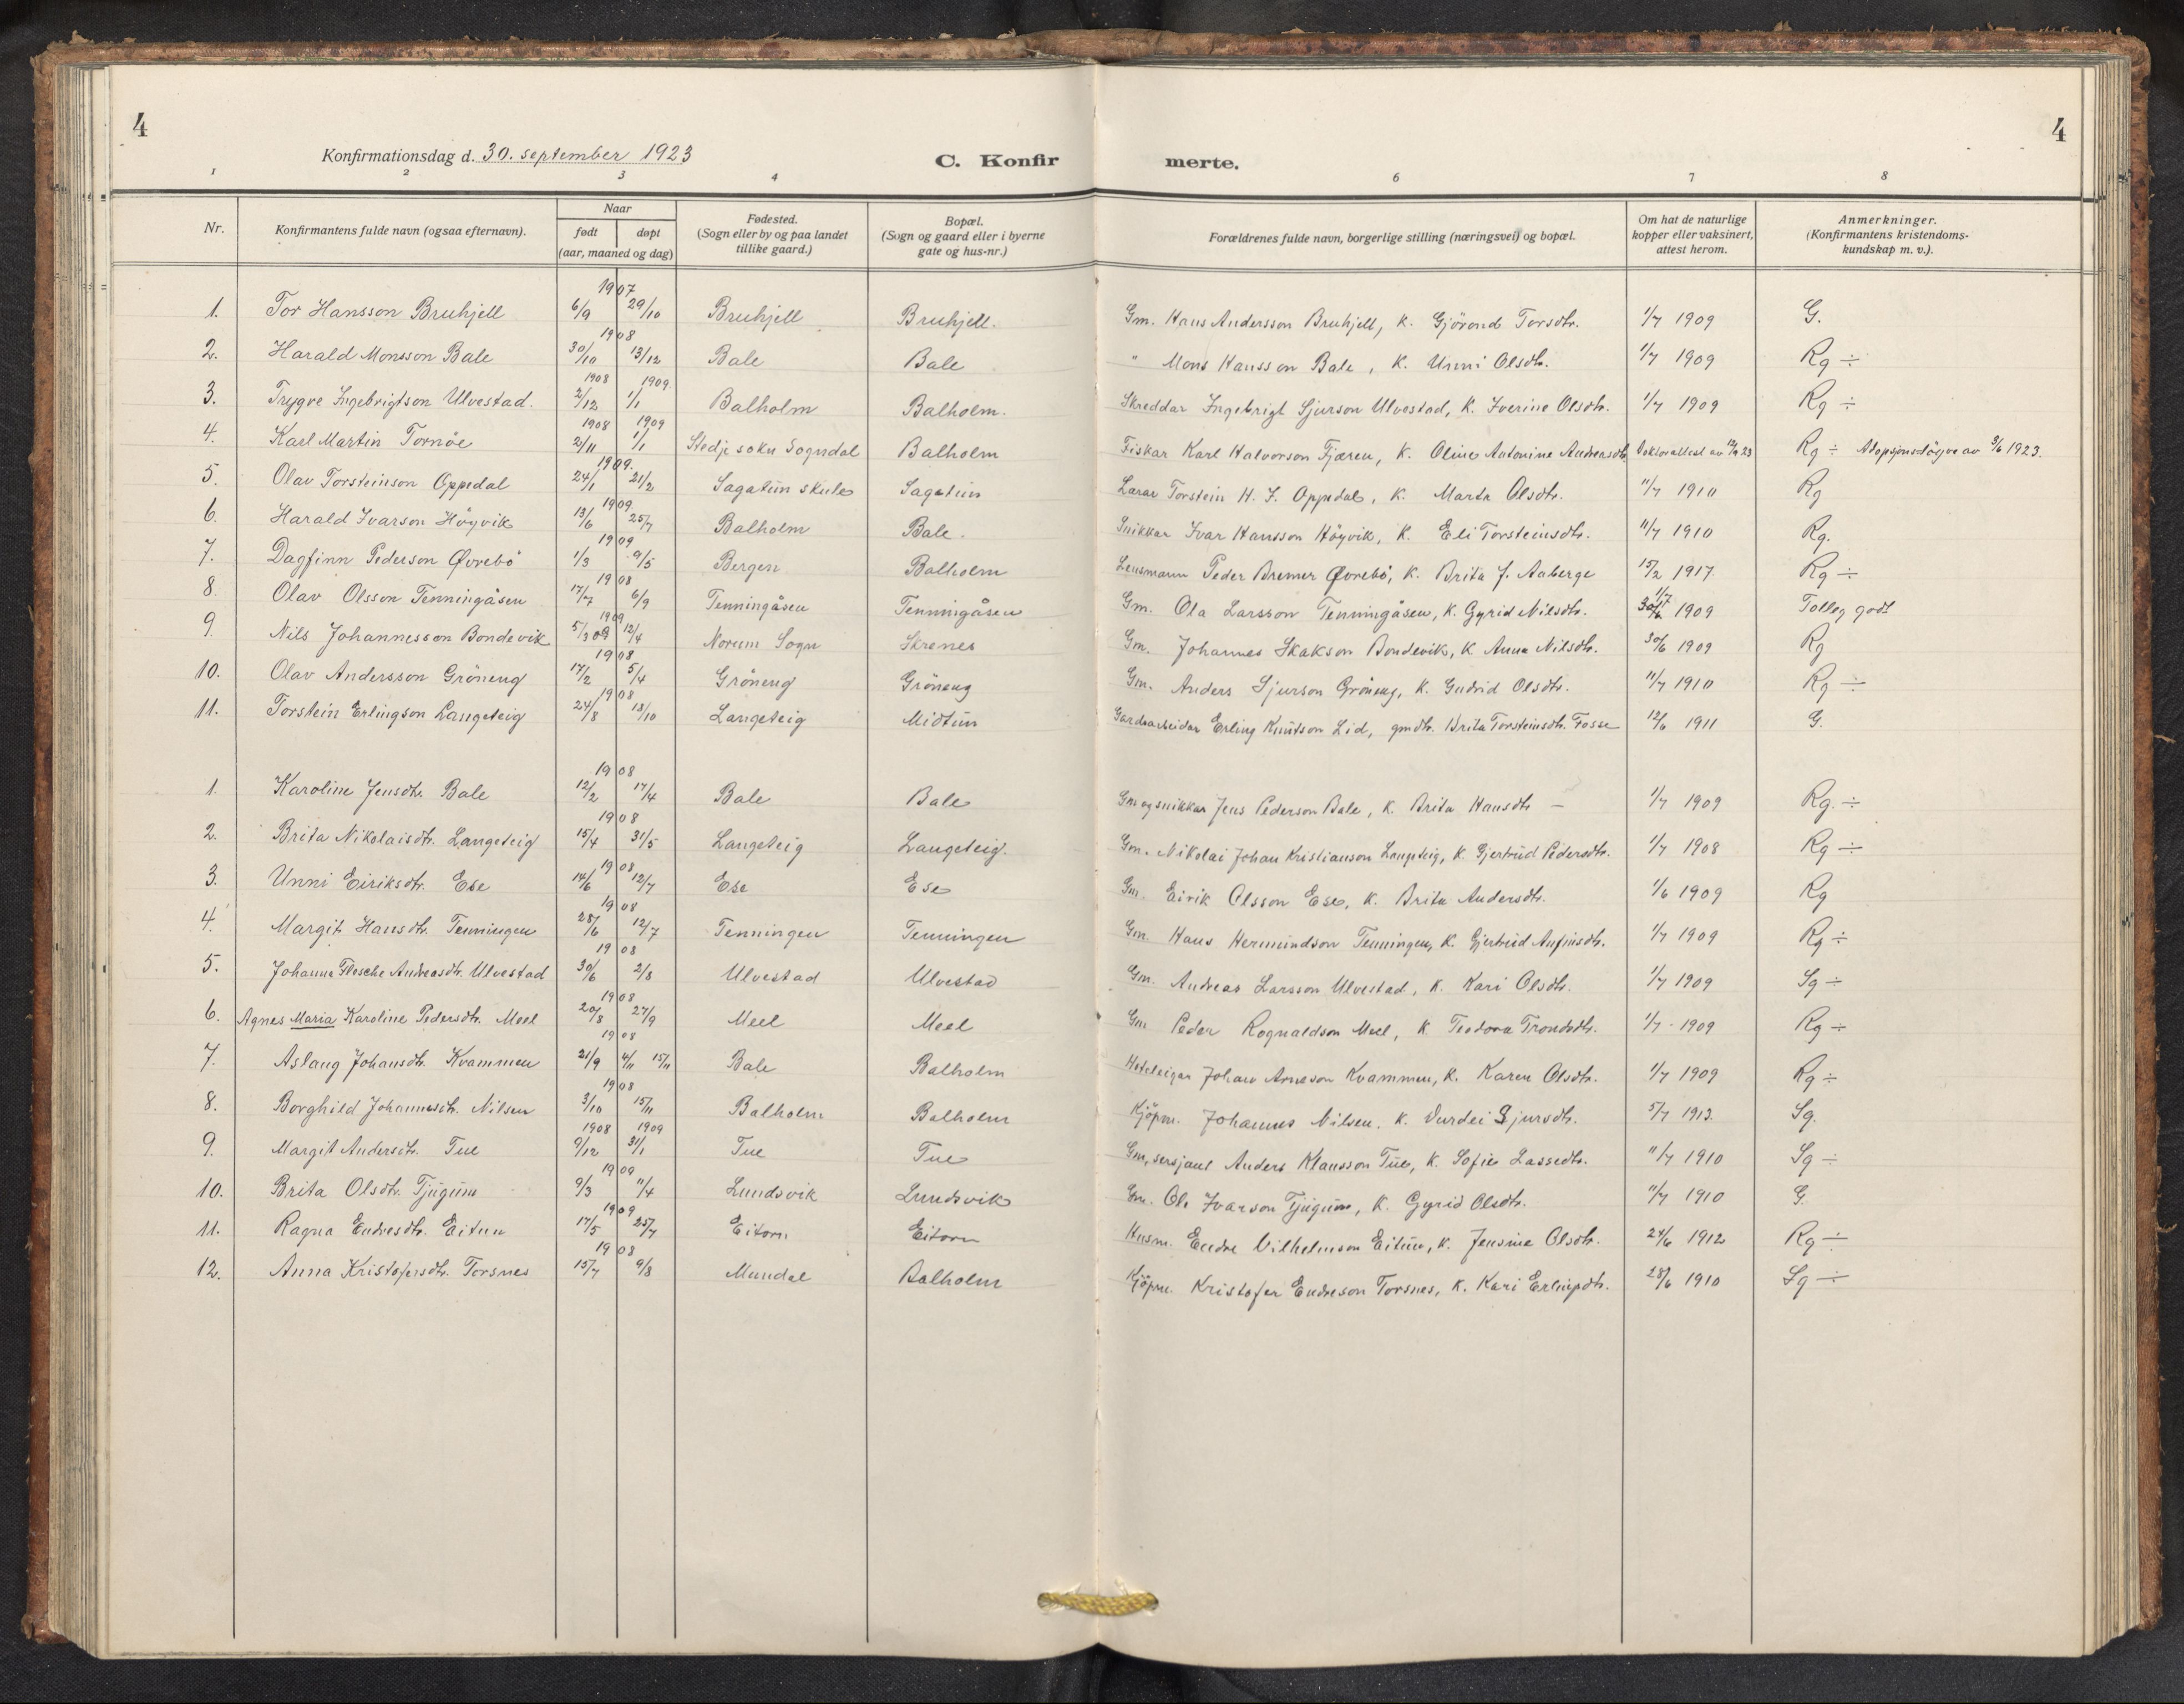 4
4
Konfirmationsdag d. 30. september 1923
C. Konfir merte.
1 2 3 4 6 7 8
Nr.
Konfirmantens fulde navn (ogsaa efternavn).
Naar
født døpt
(aar, maaned og dag)
Fødested.
(Sogn eller by og paa landet
tillike gaard.)
Bopæl.
(Sogn og gaard eller i byerne
gate og hus-nr.)
Forældrenes fulde navn, borgerlige stilling (næringsvei) og bopæl.
Om hat de naturlige
kopper eller vaksinert,
attest herom.
Anmerkninger.
(Konfirmantens kristendoms-
kundskap m. v.).
1907
1. Tor Hansson Bruhjell 6/9 29/10 Bruhjell Bruhjell. Gm. Hans Andersson Bruhjell, K. Gjörond Torsdtr. 1/7 1909 G.
1908
2. Harald Monsson Bale 30/10 13/12 Bale Bale " Mons Hansson Bale, K. Unni Olsdtr. 1/7 1909 Rg ÷
1908 1909.
3. Trygve Ingebrigtson Ulvestad. 2/12 1/1 Balholm Balholm. Skreddar Ingebrigt Sjurson Ulvestad, K. Iverine Olsdtr. 1/7 1909 Rg ÷
1908 1909
4. Karl Martin Tornöe 2/11 1/1 Stedje sokn Sogndal Balholm Fiskar Karl Halvorson Fjæren, K. Oline Antonine Andreasdtr. Doktorattest av 12/9 23 Rg ÷ Adopsjonslöyve av 9/6 1923.
1909.
5. Olav Torsteinson Oppedal 24/1 21/2 Sagatun skule Sagatun Lærar Torstein H. S. Oppedal, K. Marta Olsdtr. 11/7 1910 Rg
1909
6. Harald Ivarson Höyvik 13/6 25/7 Balholm Bale. Snikkar Ivar Hansson Höyvik, K. Eli Torsteinsdtr. 11/7 1910 Rg.
1909
7. Dagfinn Pederson Øvrebö 1/3 9/5 Bergen Balholm Lensmann Peder Bremer Øvrebö, K. Brita J. Aaberge 15/2 1917. Rg ÷
1908
8. Olav Olsson Tenningåsen 17/7 6/9 Tenningåsen Tenningåsen Gm. Ola Larsson Tenningåsen, K. Gyrid Nilsdtr. 1/7 1909 Tolleg godt
1909
9. Nils Johannesson Bondevik 5/3 09 12/4 Norum Sogn Skrenes Gm. Johannes Skakson Bondevik, K. Anna Nilsdtr. 30/6 1909 Rg
1908
10. Olav Andersson Gröneng 17/2 5/4 Gröneng Gröneng Gm. Anders Sjurson Gröneng, K. Gudrid Olsdtr. 11/7 1910 Rg ÷
1908
11. Torstein Erlingson Langeteig 24/8 13/10 Langeteig Midtun Gardsarbeidar Erling Knutson Lid, gmdtr. Brita Torsteinsdtr. Fosse 12/6 1911 G.
1908
1. Karoline Jensdtr. Bale 12/2 17/4 Bale Bale Gm og snikkar Jens Pederson Bale, K. Brita Hansdtr — 1/7 1909 Rg. ÷
1908
2. Brita Nikolaisdtr. Langeteig 15/4 31/5 Langeteig Langeteig. Gm. Nikolai Johan Kristianson Langeteig, K. Gjertrud Pedersdtr. 1/7 1908 Rg ÷
1908
3. Unni Eiriksdtr. Ese 14/6 12/7 Ese Ese Gm. Eirik Olsson Ese, K. Brita Andersdtr. 1/6 1909 Rg
1908
4. Margit Hansdtr. Tenningen 28/6 12/7 Tenningen Tenningen Gm. Hans Hermundson Tenningen, K. Gjertrud Anfinsdtr. 1/7 1909 Rg ÷
1908
5. Johanna Flesche Andreasdtr. Ulvestad 30/6 2/8 Ulvestad Ulvestad Gm. Andreas Larsson Ulvestad, K. Kari Olsdtr. 1/7 1909 Sg ÷
1908
6. Agnes Maria Karoline Pedersdtr. Meel 20/8 27/9 Meel Meel Gm Peder Rognaldson Meel, K Teodora Trondsdtr. 1/7 - 1909 Rg ÷
1908
7. Aslaug Johansdtr. Kvammen 21/9 4/11 15/11 Bale Balholm Hoteleigar Johan Arneson Kvammen, K. Karen Olsdtr. 1/7 1909 Rg ÷
1908
8. Borghild Johannesdtr. Nilsen 3/10 15/11 Balholm Balholm Kjöpm. Johannes Nilsen, K. Durdei Sjursdtr. 5/7 1913. Sg.
1908 1909
9. Margit Andersdtr. Tue 9/12 31/1 Tue Tue Gm, sersjant Anders Klausson Tue, K. Sofie Lassedtr. 11/7 1910 Sg ÷
1909
10. Brita Olsdtr. Tjugum 9/3 11/4 Lundsvik Lundsvik Gm. Ola Ivarson Tjugum, K. Gyrid Olsdtr. 11/7 1910 G.
1909
11. Ragna Endresdtr. Eitun 17/5 25/7 Eitorn Eitorn Husm. Endre Vilhelmson Eitun, K. Jensine Olsdtr. 24/6 1912 Rg ÷
1908
12. Anna Kristofersdtr. Torsnes 15/7 9/8 Mundal Balholm Kjöpm. Kristofer Endreson Torsnes, K. Kari Erlingsdtr. 28/6 1910 Sg ÷